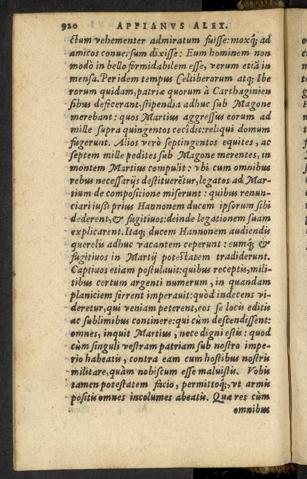 920 APPIANVS ALEX.
ctum vehementer admiratum fuisse: moxq́; ad
amicos conuersum dixisse: Eum hominem non
modò in bello formidabilem esse, verum etiã in
mensa. Per idem tempus Celtiberorum atq; Ibe
rorum quidam, patriæ quorum à Carthaginien
sibus defecerant, stipendia adhuc sub Magone
merebant: quos Martius aggressus eorum ad
mille supra quingentos cecidit: reliqui domum
fugerunt. Alios verò septingentos equites, ac
septem mille pedites sub Magone merentes, in
montem Martius compulit: vbi cum omnibus
rebus necessarijs destituerẽtur, legatos ad Mar-
tium de compositione miserunt: quibus renun-
ciari iussit prius Hannonem ducem ipsorum sibi
dederent, & fugitiuos: deinde legationem suam
explicarent. Itaq; ducem Hannonem audiendis
querelis adhuc vacantem ceperunt: eumq́; &
fugitiuos in Martij potestatem tradiderunt.
Captiuos etiam postulauit: quibus receptis, mili-
tibus certum argenti numerum, in quandam
planiciem ferrent imperauit: quòd indecens vi-
deretur, qui veniam peterent, eos se locis editis
ac sublimibus continere: qui cùm descendissent:
omnes, inquit Martius, nece digni estis: quod
cùm singuli vestram patriam sub nostro impe-
rio habeatis, contra eam cum hostibus nostris
militare, quàm nobiscum esse maluistis. Vobis
tamen potestatem facio, permittoq́;, vt armis
positis omnes incolumes abeatis. Qua res cùm
omnibus